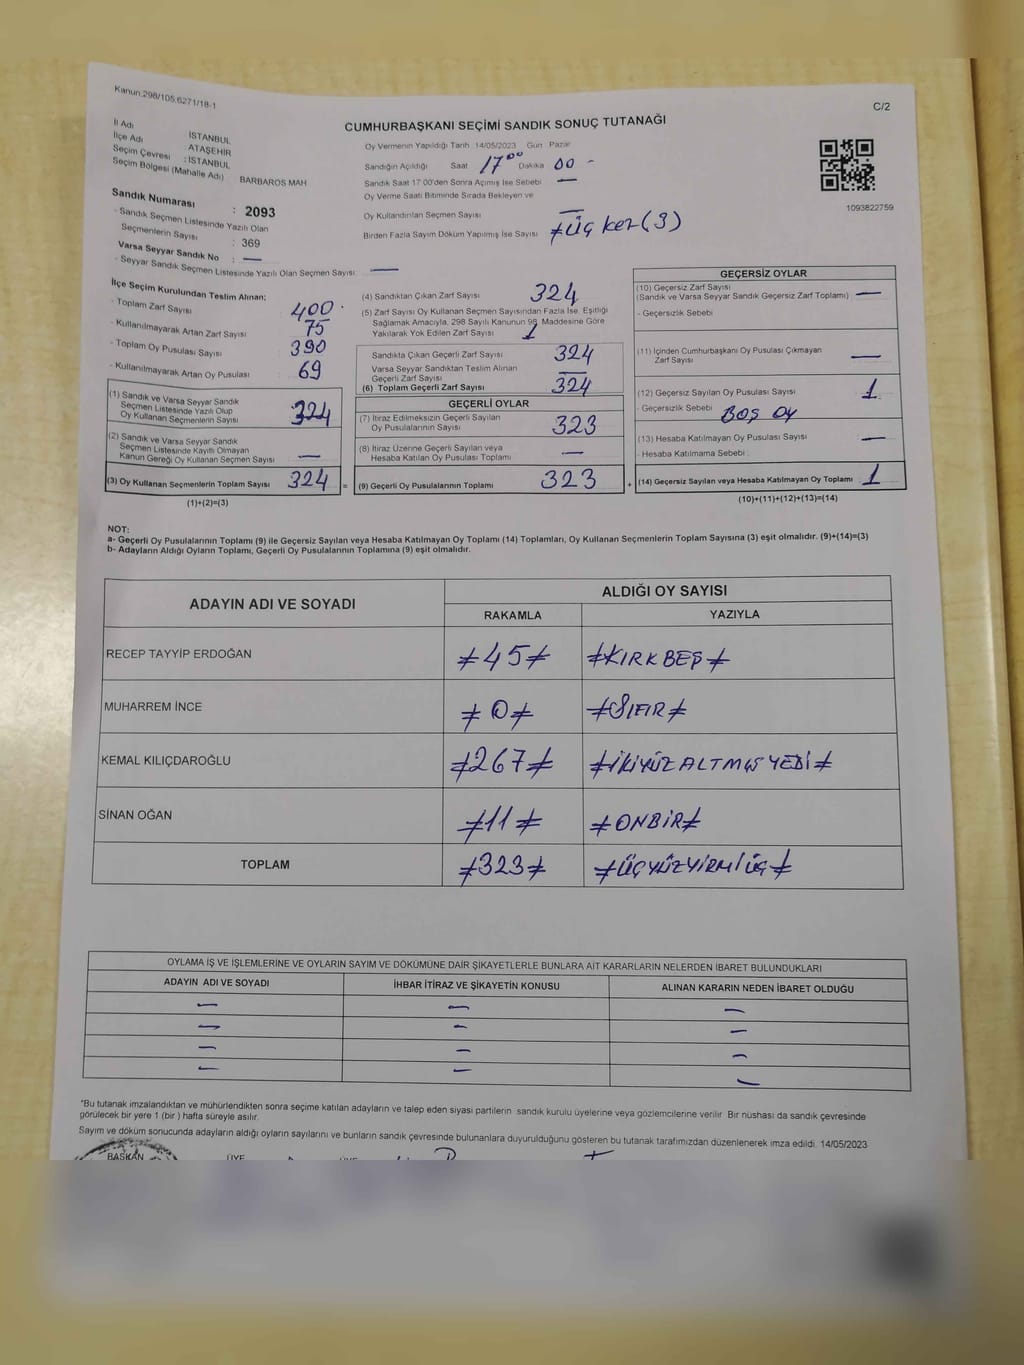 Kanun.298/105.6271/18-1
C/2
CUMHURBAŞKANI SEÇİMİ SANDIK SONUÇ TUTANAĞI
İl Adı : İSTANBUL
İlçe Adı ATAŞEHİR
Seçim Çevresi : İSTANBUL
Seçim Bölgesi (Mahalle Adı) BARBAROS MAH
Sandık Numarası : 2093
- Sandık Seçmen Listesinde Yazılı Olan
Seçmenlerin Sayısı : 369
Varsa Seyyar Sandık No : —
- Seyyar Sandık Seçmen Listesinde Yazılı Olan Seçmen Sayısı : —
Oy Vermenin Yapıldığı Tarih 14/05/2023 Gün Pazar
Sandığın Açıldığı Saat 17°° Dakika 00 -
Sandık Saat 17:00'den Sonra Açımış İse Sebebi —
Oy Verme Saati Bitiminde Sırada Bekleyen ve
Oy Kullandırılan Seçmen Sayısı —
Birden Fazla Sayım Döküm Yapılmış İse Sayısı ≠ÜÇ kez(3)
1093822759
İlçe Seçim Kurulundan Teslim Alınan:
- Toplam Zarf Sayısı 400
- Kullanılmayarak Artan Zarf Sayısı 75
- Toplam Oy Pusulası Sayısı 390
- Kullanılmayarak Artan Oy Pusulası 69
(1) Sandık ve Varsa Seyyar Sandık
Seçmen Listesinde Yazılı Olup
Oy Kullanan Seçmenlerin Sayısı 324
(2) Sandık ve Varsa Seyyar Sandık
Seçmen Listesinde Kayıtlı Olmayan
Kanun Gereği Oy Kullanan Seçmen Sayısı —
(3) Oy Kullanan Seçmenlerin Toplam Sayısı 324 =
(1)+(2)=(3)
(4) Sandıktan Çıkan Zarf Sayısı 324
(5) Zarf Sayısı Oy Kullanan Seçmen Sayısından Fazla İse, Eşitliği
Sağlamak Amacıyla, 298 Sayılı Kanunun 98. Maddesine Göre
Yakılarak Yok Edilen Zarf Sayısı 1
Sandıkta Çıkan Geçerli Zarf Sayısı 324
Varsa Seyyar Sandıktan Teslim Alınan
Geçerli Zarf Sayısı —
(6) Toplam Geçerli Zarf Sayısı 324
GEÇERLİ OYLAR
(7) İtiraz Edilmeksizin Geçerli Sayılan
Oy Pusulalarının Sayısı 323
(8) İtiraz Üzerine Geçerli Sayılan veya
Hesaba Katılan Oy Pusulası Toplamı —
(9) Geçerli Oy Pusulalarının Toplamı 323 +
GEÇERSİZ OYLAR
(10) Geçersiz Zarf Sayısı
(Sandık ve Varsa Seyyar Sandık Geçersiz Zarf Toplamı) —
- Geçersizlik Sebebi
(11) İçinden Cumhurbaşkanı Oy Pusulası Çıkmayan
Zarf Sayısı —
(12) Geçersiz Sayılan Oy Pusulası Sayısı 1
- Geçersizlik Sebebi BOŞ OY
(13) Hesaba Katılmayan Oy Pusulası Sayısı —
- Hesaba Katılmama Sebebi :
(14) Geçersiz Sayılan veya Hesaba Katılmayan Oy Toplamı 1
(10)+(11)+(12)+(13)=(14)
NOT:
a- Geçerli Oy Pusulalarının Toplamı (9) ile Geçersiz Sayılan veya Hesaba Katılmayan Oy Toplamı (14) Toplamları, Oy Kullanan Seçmenlerin Toplam Sayısına (3) eşit olmalıdır. (9)+(14)=(3)
b- Adayların Aldığı Oyların Toplamı, Geçerli Oy Pusulalarının Toplamına (9) eşit olmalıdır.
ADAYIN ADI VE SOYADI ALDIĞI OY SAYISI
RAKAMLA YAZIYLA
RECEP TAYYİP ERDOĞAN ≠45≠ ≠KIRKBEŞ≠
MUHARREM İNCE ≠0≠ ≠SIFIR≠
KEMAL KILIÇDAROĞLU ≠267≠ ≠İKİYÜZALTMIŞYEDİ≠
SİNAN OĞAN ≠11≠ ≠ONBİR≠
TOPLAM ≠323≠ ≠ÜÇYÜZYİRMİÜÇ≠
OYLAMA İŞ VE İŞLEMLERİNE VE OYLARIN SAYIM VE DÖKÜMÜNE DAİR ŞİKAYETLERLE BUNLARA AİT KARARLARIN NELERDEN İBARET BULUNDUKLARI
ADAYIN ADI VE SOYADI İHBAR İTİRAZ VE ŞİKAYETİN KONUSU ALINAN KARARIN NEDEN İBARET OLDUĞU
— — —
— — —
— — —
— — —
"Bu tutanak imzalandıktan ve mühürlendikten sonra seçime katılan adayların ve talep eden siyasi partilerin sandık kurulu üyelerine veya gözlemcilerine verilir Bir nüshası da sandık çevresinde
görülecek bir yere 1 (bir ) hafta süreyle asılır.
Sayım ve döküm sonucunda adayların aldığı oyların sayılarını ve bunların sandık çevresinde bulunanlara duyurulduğunu gösteren bu tutanak tarafımızdan düzenlenerek imza edildi. 14/05/2023
BAŞKAN ÜYE ÜYE